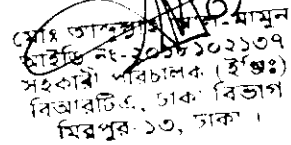 মোঃ
আইডি নং-২০১৮১০২১৩৭
সহকারী পরিচালক (ইঞ্জিঃ)
বিআরটিএ, ঢাকা বিভাগ
মিরপুর-১৩, ঢাকা।